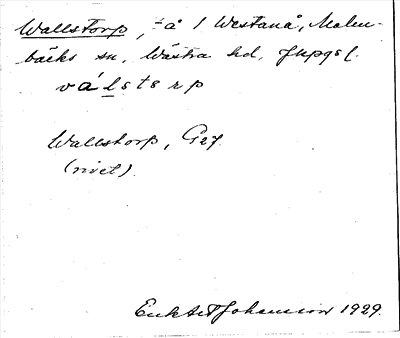 Wallstorp, -å / Westanå, Malm-
bäcks sn, Wästra hd, Jkpgs l.
válsterp
Wallstorp, G27
(rivet).
Johansson 1929.